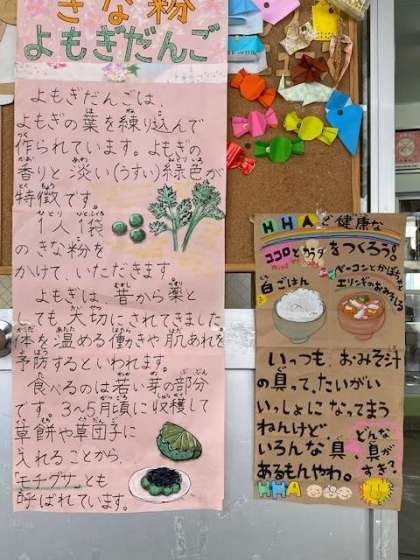 きな粉
よもぎだんご
よもぎだんごは、
よもぎの葉を練り込んで
作られています。よもぎの
香りと淡い(うすい)緑色が
特徴です。
1人1袋
のきな粉を
かけて、いただきます。
よもぎは、昔から薬と
しても大切にされてきました。
体を温める働きや肌あれを
予防するといわれます。
食べるのは若い葉の部分
です。3〜5月頃に収穫して
草餅や草団子に
入れることから、
モチグサとも
呼ばれています。
HHAで健康な
ココロとカラダをつくろう。
白ごはん
ベーコンとかぼちゃ
エリンギのおみそしる
いっつも、おみそ汁
の具って、たいがい
いっしょになってまう
ねんけど、
いろんな具、
あるもんやわ。
どんな
具が
すき?
HHA